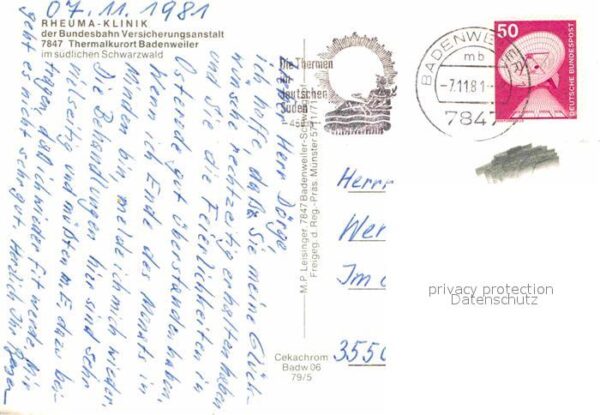 07.11.1981
RHEUMA-KLINIK
der Bundesbahn Versicherungsanstalt
7847 Thermalkurort Badenweiler
im südlichen Schwarzwald
Lieber Herr Dörge,
ich hoffe, daß Sie meine Glück-
wünsch rechtzeitig erhalten haben
und Sie die Feierlichkeiten in
Osterode gut überstanden haben.
Wenn ich Ende des Monats in
Minden bin, melde ich mich wieder.
Die Behandlungen hier sind sehr
vielseitig und müßten m.E. dazu bei-
tragen, daß ich wieder fit werde. Mir
geht es nicht sehr gut. Herzlich Ihr
M.P. Leisinger, 7847 Badenweiler-Schw
Freigeg. d. Reg.-Präs. Münster 5711/71
Cekachrom
Badw 06
79/5
Die Thermen
im
deutschen
Süden
BADENWEILER 1
mb
-7.11.81-
7847
50
DEUTSCHE BUNDESPOST
Herrn
Wer
Im
3550
privacy protection
Datenschutz